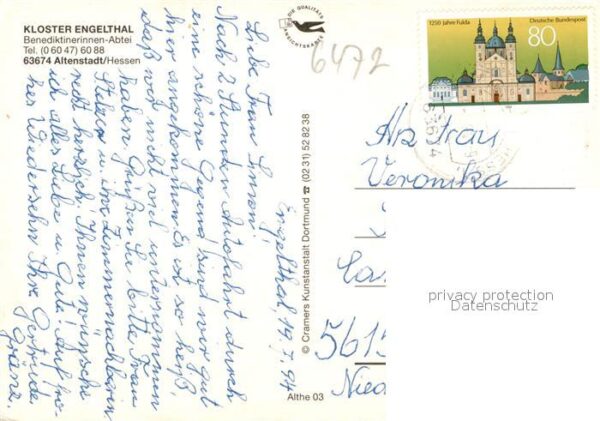 KLOSTER ENGELTHAL
Benediktinerinnen-Abtei
Tel. (0 60 47) 60 88
63674 Altenstadt/Hessen
DIE QUALITÄTS
ANSICHTSKARTE
6472
1250 Jahre Fulda
Deutsche Bundespost
80
Engelthal, 19.7.94
Liebe Frau
Nach 2 Stunden Autofahrt durch
eine schöne Gegend sind wir gut
hier angekommen. Es ist so heiß,
daß wir nicht viel unternommen
haben. Grüßen Sie bitte Frau
u. ihre Zimmernachbarin
recht herzlich, Ihnen wünsche
ich alles Liebe u. Gute! Auf fro-
hes Wiedersehn Ihre Gertrude
© Cramers Kunstanstalt Dortmund ☎ (02 31) 52 82 38
Althe 03
Frau
Veronika
Ca
5615
Nied
privacy protection
Datenschutz